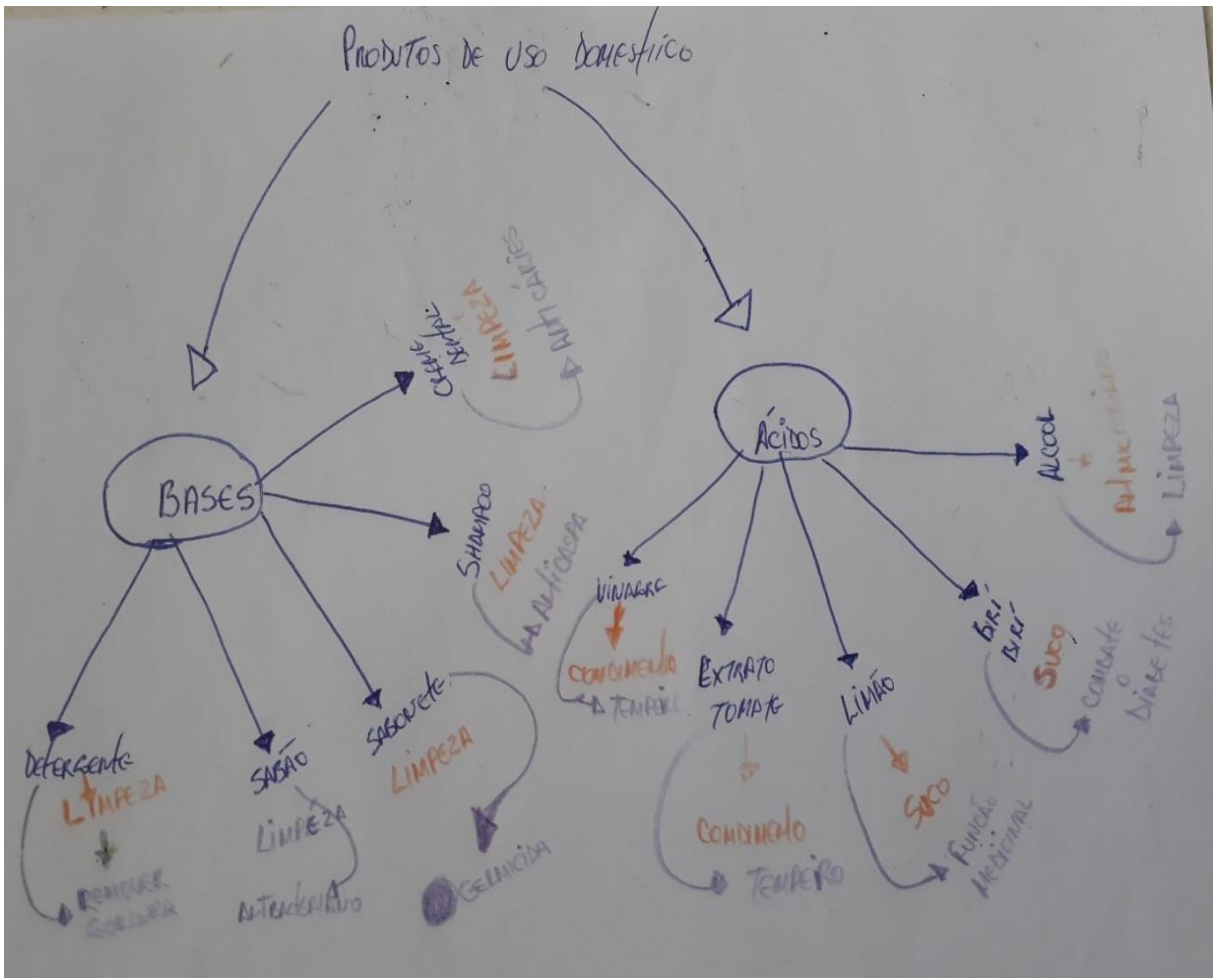 PRODUTOS DE USO DOMESTICO
BASES
CREME
DENTAL
LIMPEZA
ANTICÁRIES
SHAMPOO
LIMPEZA
ANTICASPA
SABONETE
LIMPEZA
GERMICIDA
SABÃO
LIMPEZA
DETERGENTE
LIMPEZA
REMOVER
GORDURA
ÁCIDOS
VINAGRE
CONDIMENTO
TEMPERO
EXTRATO
TOMATE
CONDIMENTO
TEMPEIRO
LIMÃO
SUCO
FUNCÃO
MEDICINAL
BIRÍ
BIRÍ
SUCO
COMBATE
O
DIABETES
ALCOOL
LIMPEZA